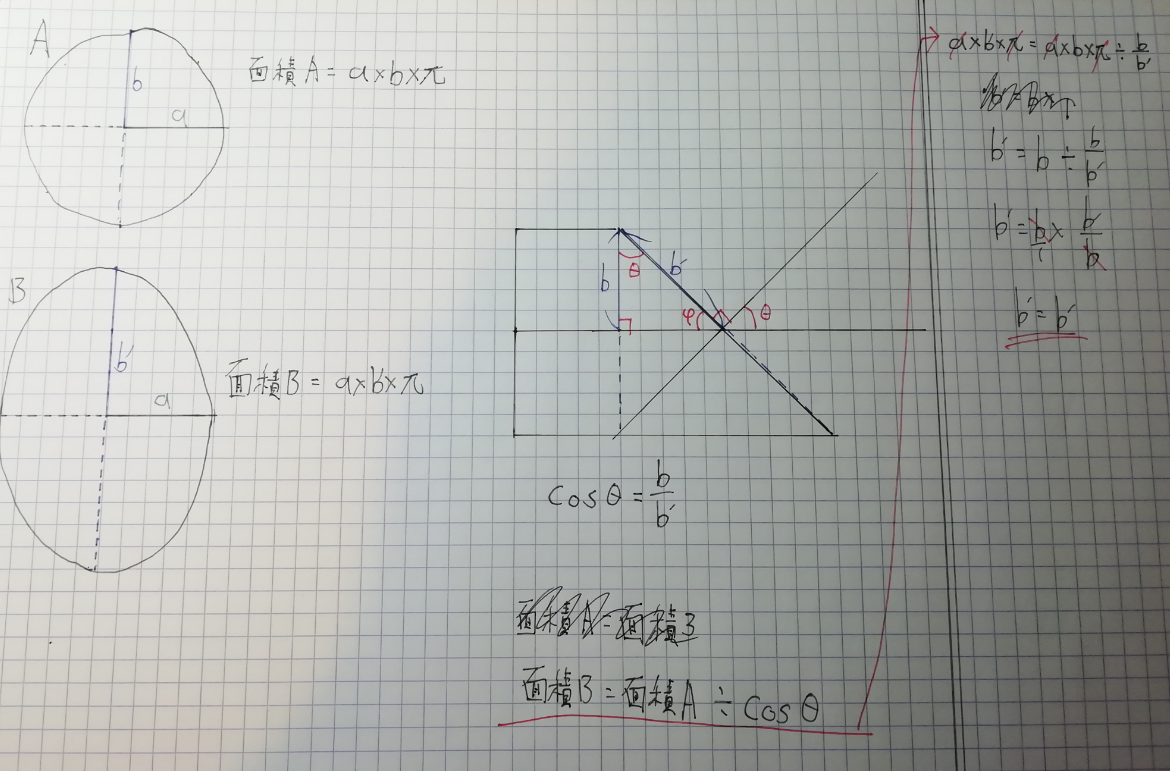 A
b
a
面積A = a×b×π
B
b'
a
面積B = a×b'×π
b
θ
b'
φ
θ
cosθ = b/b'
面積A = 面積B
面積B = 面積A ÷ cosθ
a×b'×π = a×b×π ÷ b/b'
b' = b ÷ b/b'
b' = b/1 × b'/b
b' = b'